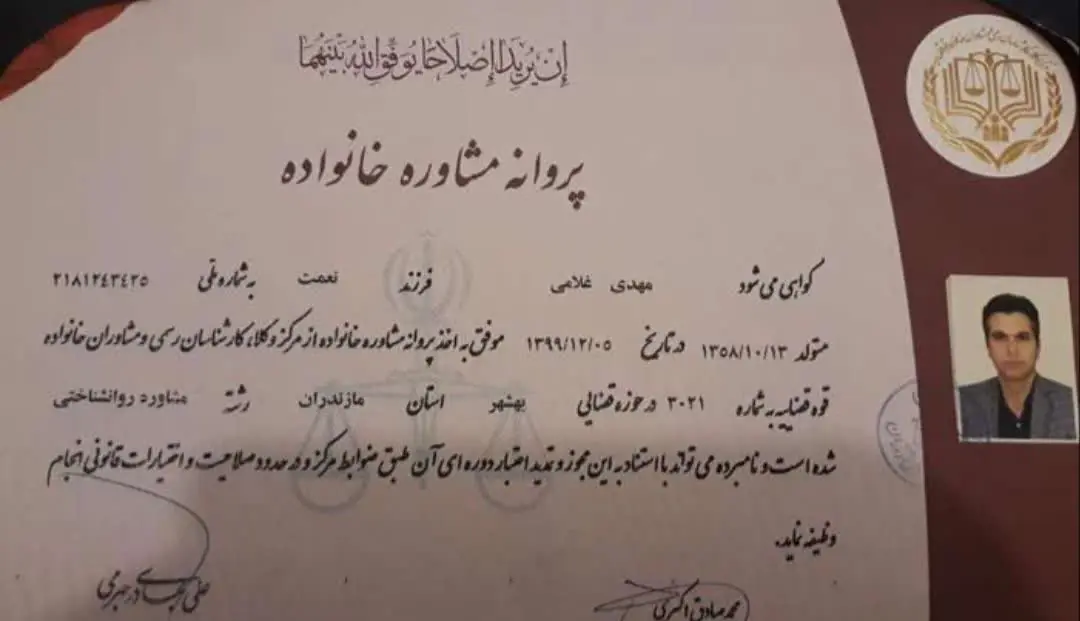 إِنْ يُرِيدَا إِصْلَاحًا يُوَفِّقِ اللَّهُ بَيْنَهُمَا
پروانه مشاوره خانواده
گواهی می شود مهدی غلامی فرزند نعمت به شماره ملی ۲۱۸۱۲۴۳۴۲۵
متولد ۱۳۵۸/۱۰/۱۳ در تاریخ ۱۳۹۹/۱۲/۰۵ موفق به اخذ پروانه مشاوره خانواده از مرکز وکلا، کارشناسان رسمی و مشاوران خانواده
قوه قضاییه به شماره ۳۰۲۱ در حوزه قضایی بهشهر استان مازندران رشته مشاوره روانشناختی
شده است و نامبرده می تواند با استناد به این مجوز و تمدید اعتبار دوره ای آن طبق ضوابط مرکز و در حدود صلاحیت و اختیارات قانونی انجام
وظیفه نماید.
محمد صادق اکبری